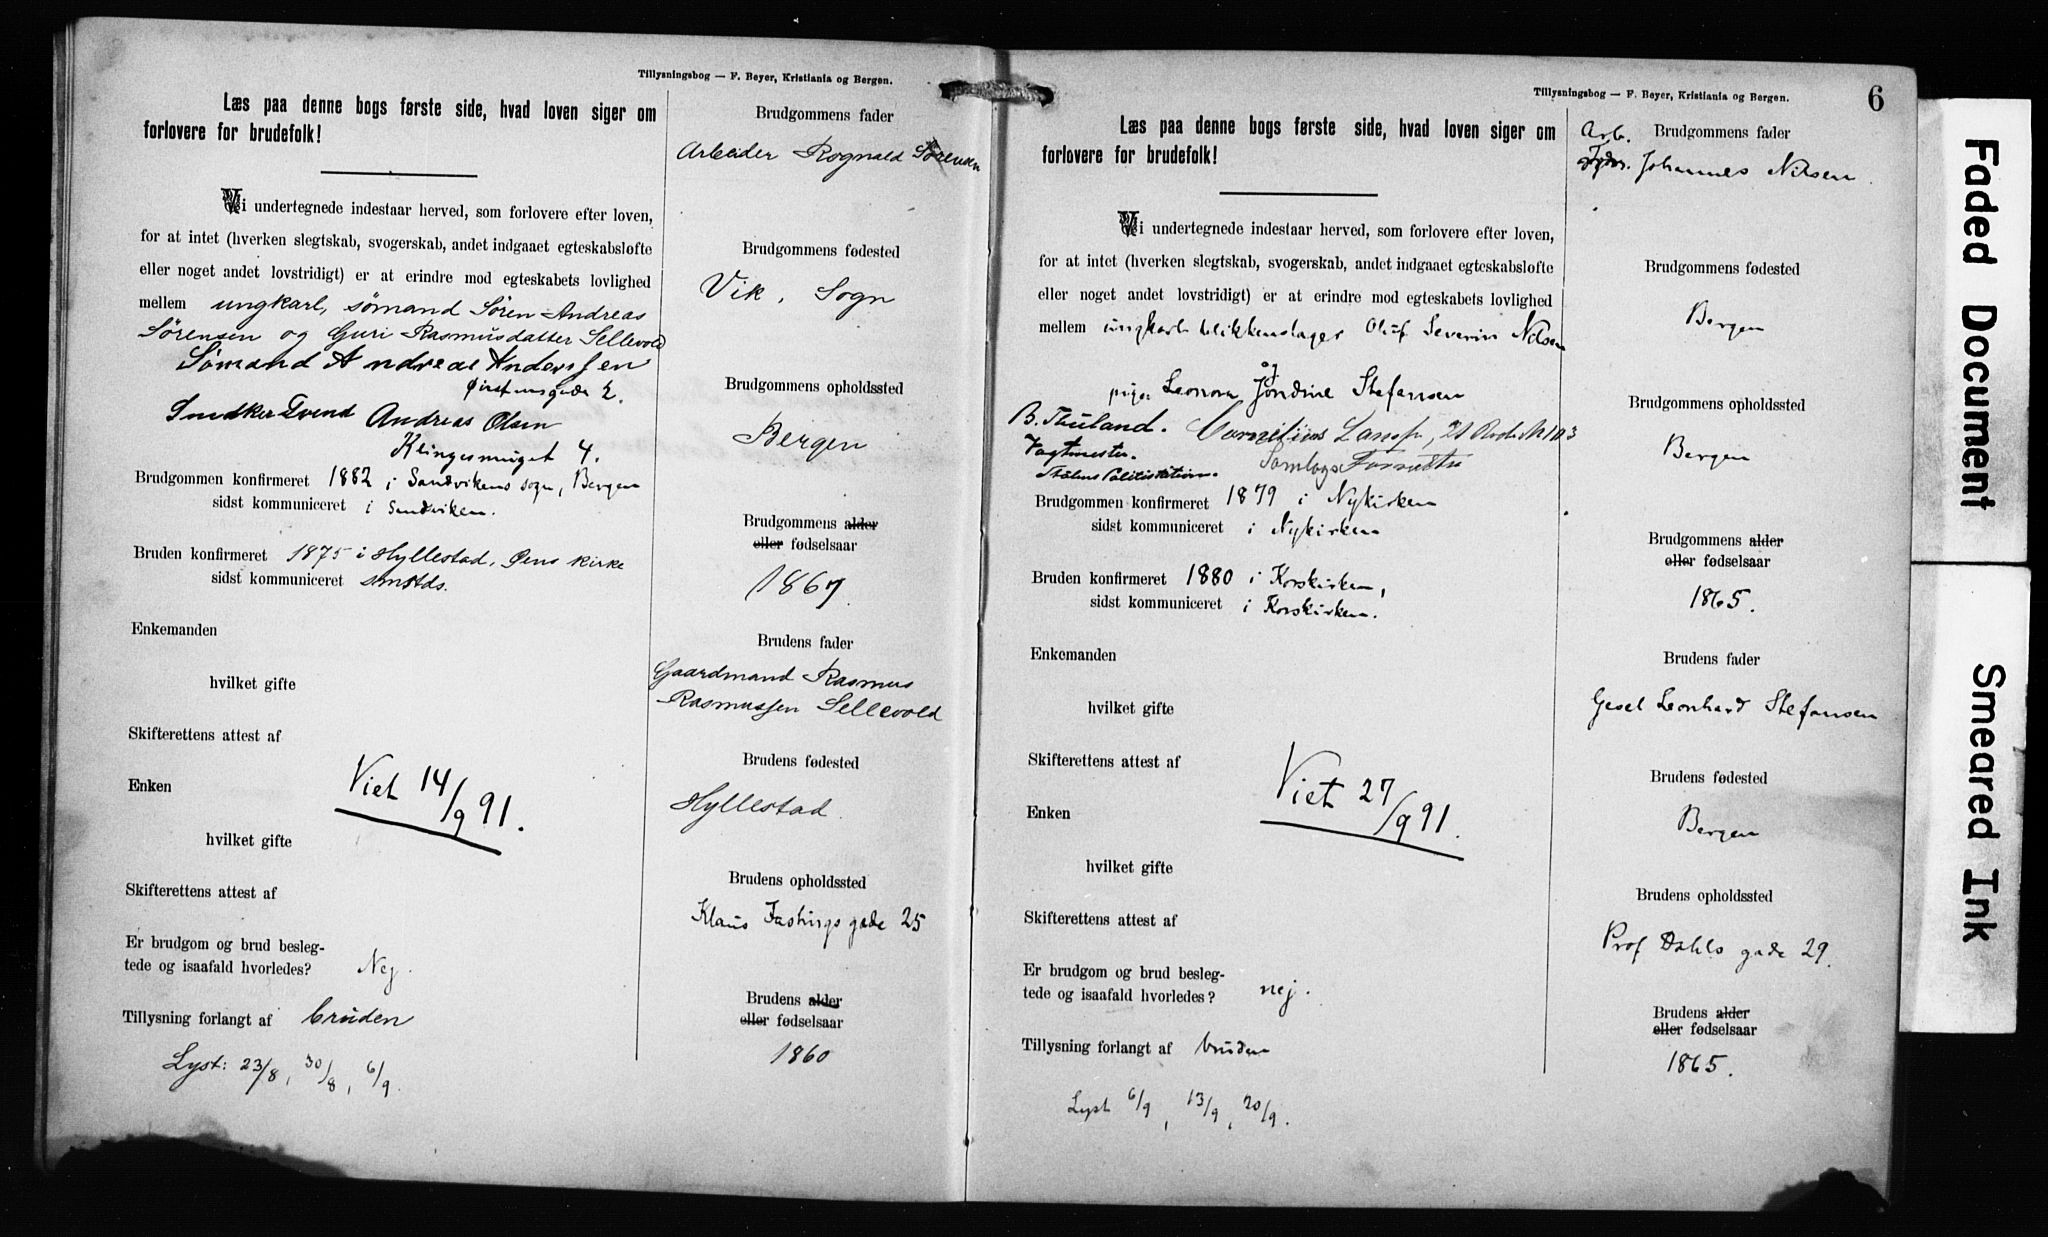 Tillysningsbog — F. Beyer, Kristiania og Bergen.
Læs paa denne bogs første side, hvad loven siger om
forlovere for brudefolk!
Vi undertegnede indestaar herved, som forlovere efter loven,
for at intet (hverken slegtskab, svogerskab, andet indgaaet egteskabsløfte
eller noget andet lovstridigt) er at erindre mod egteskabets lovlighed
mellem ungkarl, sømand Søren Andreas
Sørensen og Guri Rasmusdatter Sellevold
Sømand Andreas Anderssen
2.
Andreas Olsen
Klingesmuget 4.
Brudgommen konfirmeret 1882 i Sandvikens sogn, Bergen
sidst kommuniceret i Sandviken.
Bruden konfirmeret 1875 i Hyllestad, Øens kirke
sidst kommuniceret smstds.
Enkemanden
hvilket gifte
Skifterettens attest af
Enken
Viet 14/9 91.
hvilket gifte
Skifterettens attest af
Er brudgom og brud besleg-
tede og isaafald hvorledes? Nej.
Tillysning forlangt af bruden
Lyst: 23/8, 30/8, 6/9.
Brudgommens fader
Arbeider Rognald Sørensen
Brudgommens fødested
Vik, Sogn
Brudgommens opholdssted
Bergen
Brudgommens alder
eller fødselsaar
1867.
Brudens fader
Gaardmand Rasmus
Rasmussen Sellevold
Brudens fødested
Hyllestad.
Brudens opholdssted
Klaus Fastings gade 25
Brudens alder
eller fødselsaar
1860
Tillysningsbog — F. Beyer, Kristiania og Bergen.
6
Læs paa denne bogs første side, hvad loven siger om
forlovere for brudefolk!
Vi undertegnede indestaar herved, som forlovere efter loven,
for at intet (hverken slegtskab, svogerskab, andet indgaaet egteskabsløfte
eller noget andet lovstridigt) er at erindre mod egteskabets lovlighed
mellem ungkarl blikkenslager Oluf Severin Nilsen
og
pige Leonora Jondine Stefansen
B. Thuland. Cornelius
Vagtmester.
Brudgommen konfirmeret 1879 i Nykirken
sidst kommuniceret i Nykirken
Bruden konfirmeret 1880 i Korskirken,
sidst kommuniceret i Korskirken.
Enkemanden
hvilket gifte
Skifterettens attest af
Enken
Viet 27/9 91.
hvilket gifte
Skifterettens attest af
Er brudgom og brud besleg-
tede og isaafald hvorledes? nej.
Tillysning forlangt af bruden
Lyst 6/9, 13/9, 20/9.
Brudgommens fader
Arb.
Johannes Nilsen.
Brudgommens fødested
Bergen
Brudgommens opholdssted
Bergen
Brudgommens alder
eller fødselsaar
1865.
Brudens fader
Gesel Leonhard Stefansen
Brudens fødested
Bergen
Brudens opholdssted
Prof Dahls gade 29.
Brudens alder
eller fødselsaar
1865.
Faded Document
Smeared Ink